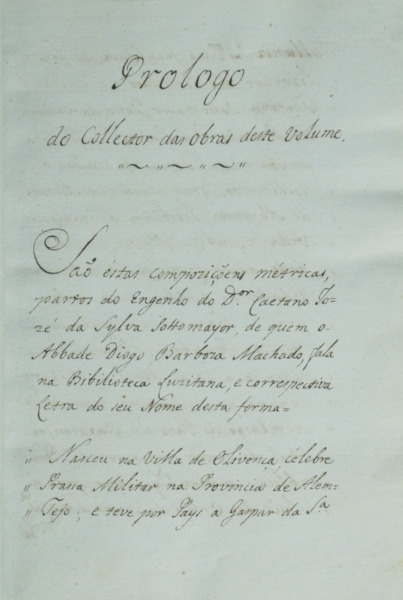 Prologo
do Collector das Obras deste Volume.
Saõ éstas compoziçoẽns métricas,
partos do Engenho do D.or Caetano Jo-
zé da Sylva Sottomayor, de quem o
Abbade Diogo Barboza Machado, fala
na Bibilioteca Luzitana, e correspectiva
Letra do seu Nome desta forma=
,, Nasceu na Villa de Olivença, célebre
,, Prassa Militar na Provincia de Alem=
,, Tejo; e teve por Pays a Gaspar da S.a